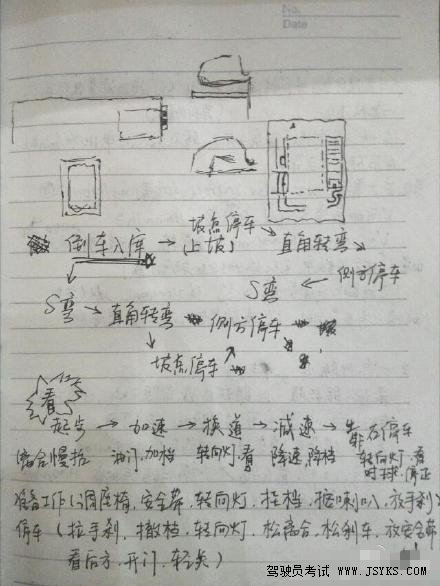 No.
Date
倒车入库 → 坡点停车(上坡) → 直角转弯 →
S弯 → 直角转弯 侧方停车 S弯 ← 侧方停车
坡点停车
看
起步 → 加速 → 换道 → 减速 → 靠右停车
离合慢抬 油门.加档 转向灯.看 降速,降档 转向灯.看
停正
准备工作(调座椅,安全带,转向灯,挂档,按喇叭,放手刹)
停车(拉手刹,撤档,转向灯,松离合,松刹车,放安全带
看后方,开门,轻关)
驾驶员考试 www.JSYKS.com